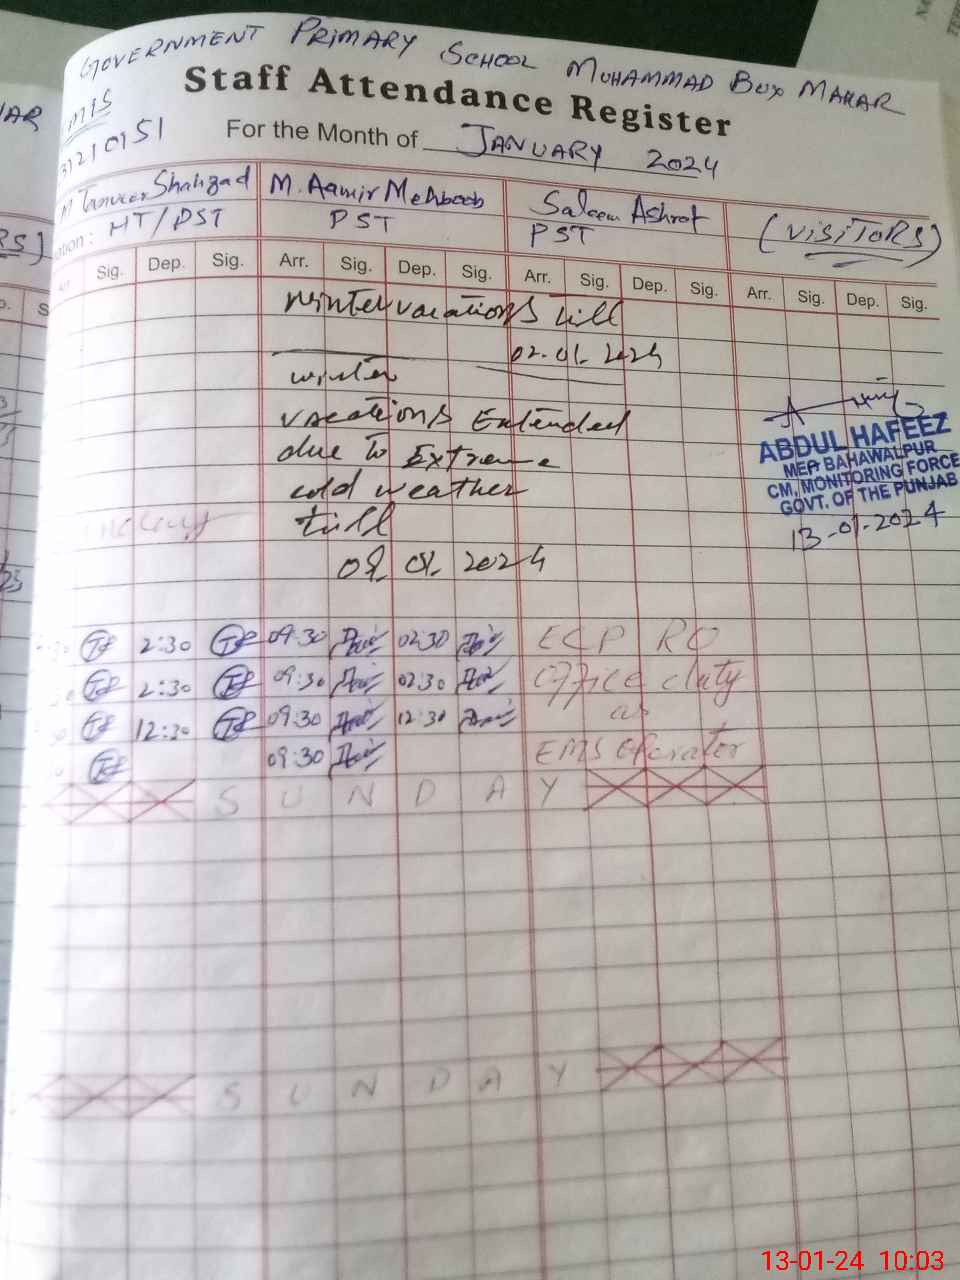 GOVERNMENT PRIMARY SCHOOL MUHAMMAD BUX MAHAR
Staff Attendance Register
MIS
31210151
For the Month of JANUARY 2024
M Tanveer Shahzad M. Aamir Mehboob Saleem Ashraf (VISITORS)
HT/PST PST PST
Sig. Dep. Sig. Arr. Sig. Dep. Sig. Arr. Sig. Dep. Sig. Arr. Sig. Dep. Sig.
winter vacations till
02-01-2024
winter
vacations Extended
due to Extreme
cold weather
till
09. 01. 2024
ABDUL HAFEEZ
MEA BAHAWALPUR
CM, MONITORING FORCE
GOVT. OF THE PUNJAB
13-01-2024
2:30 09:30 02:30 ECP RO
2:30 09:30 02:30 Office duty
12:30 09:30 12:30 as
09:30 EMS Operator
S U N D A Y
S U N D A Y
13-01-24 10:03